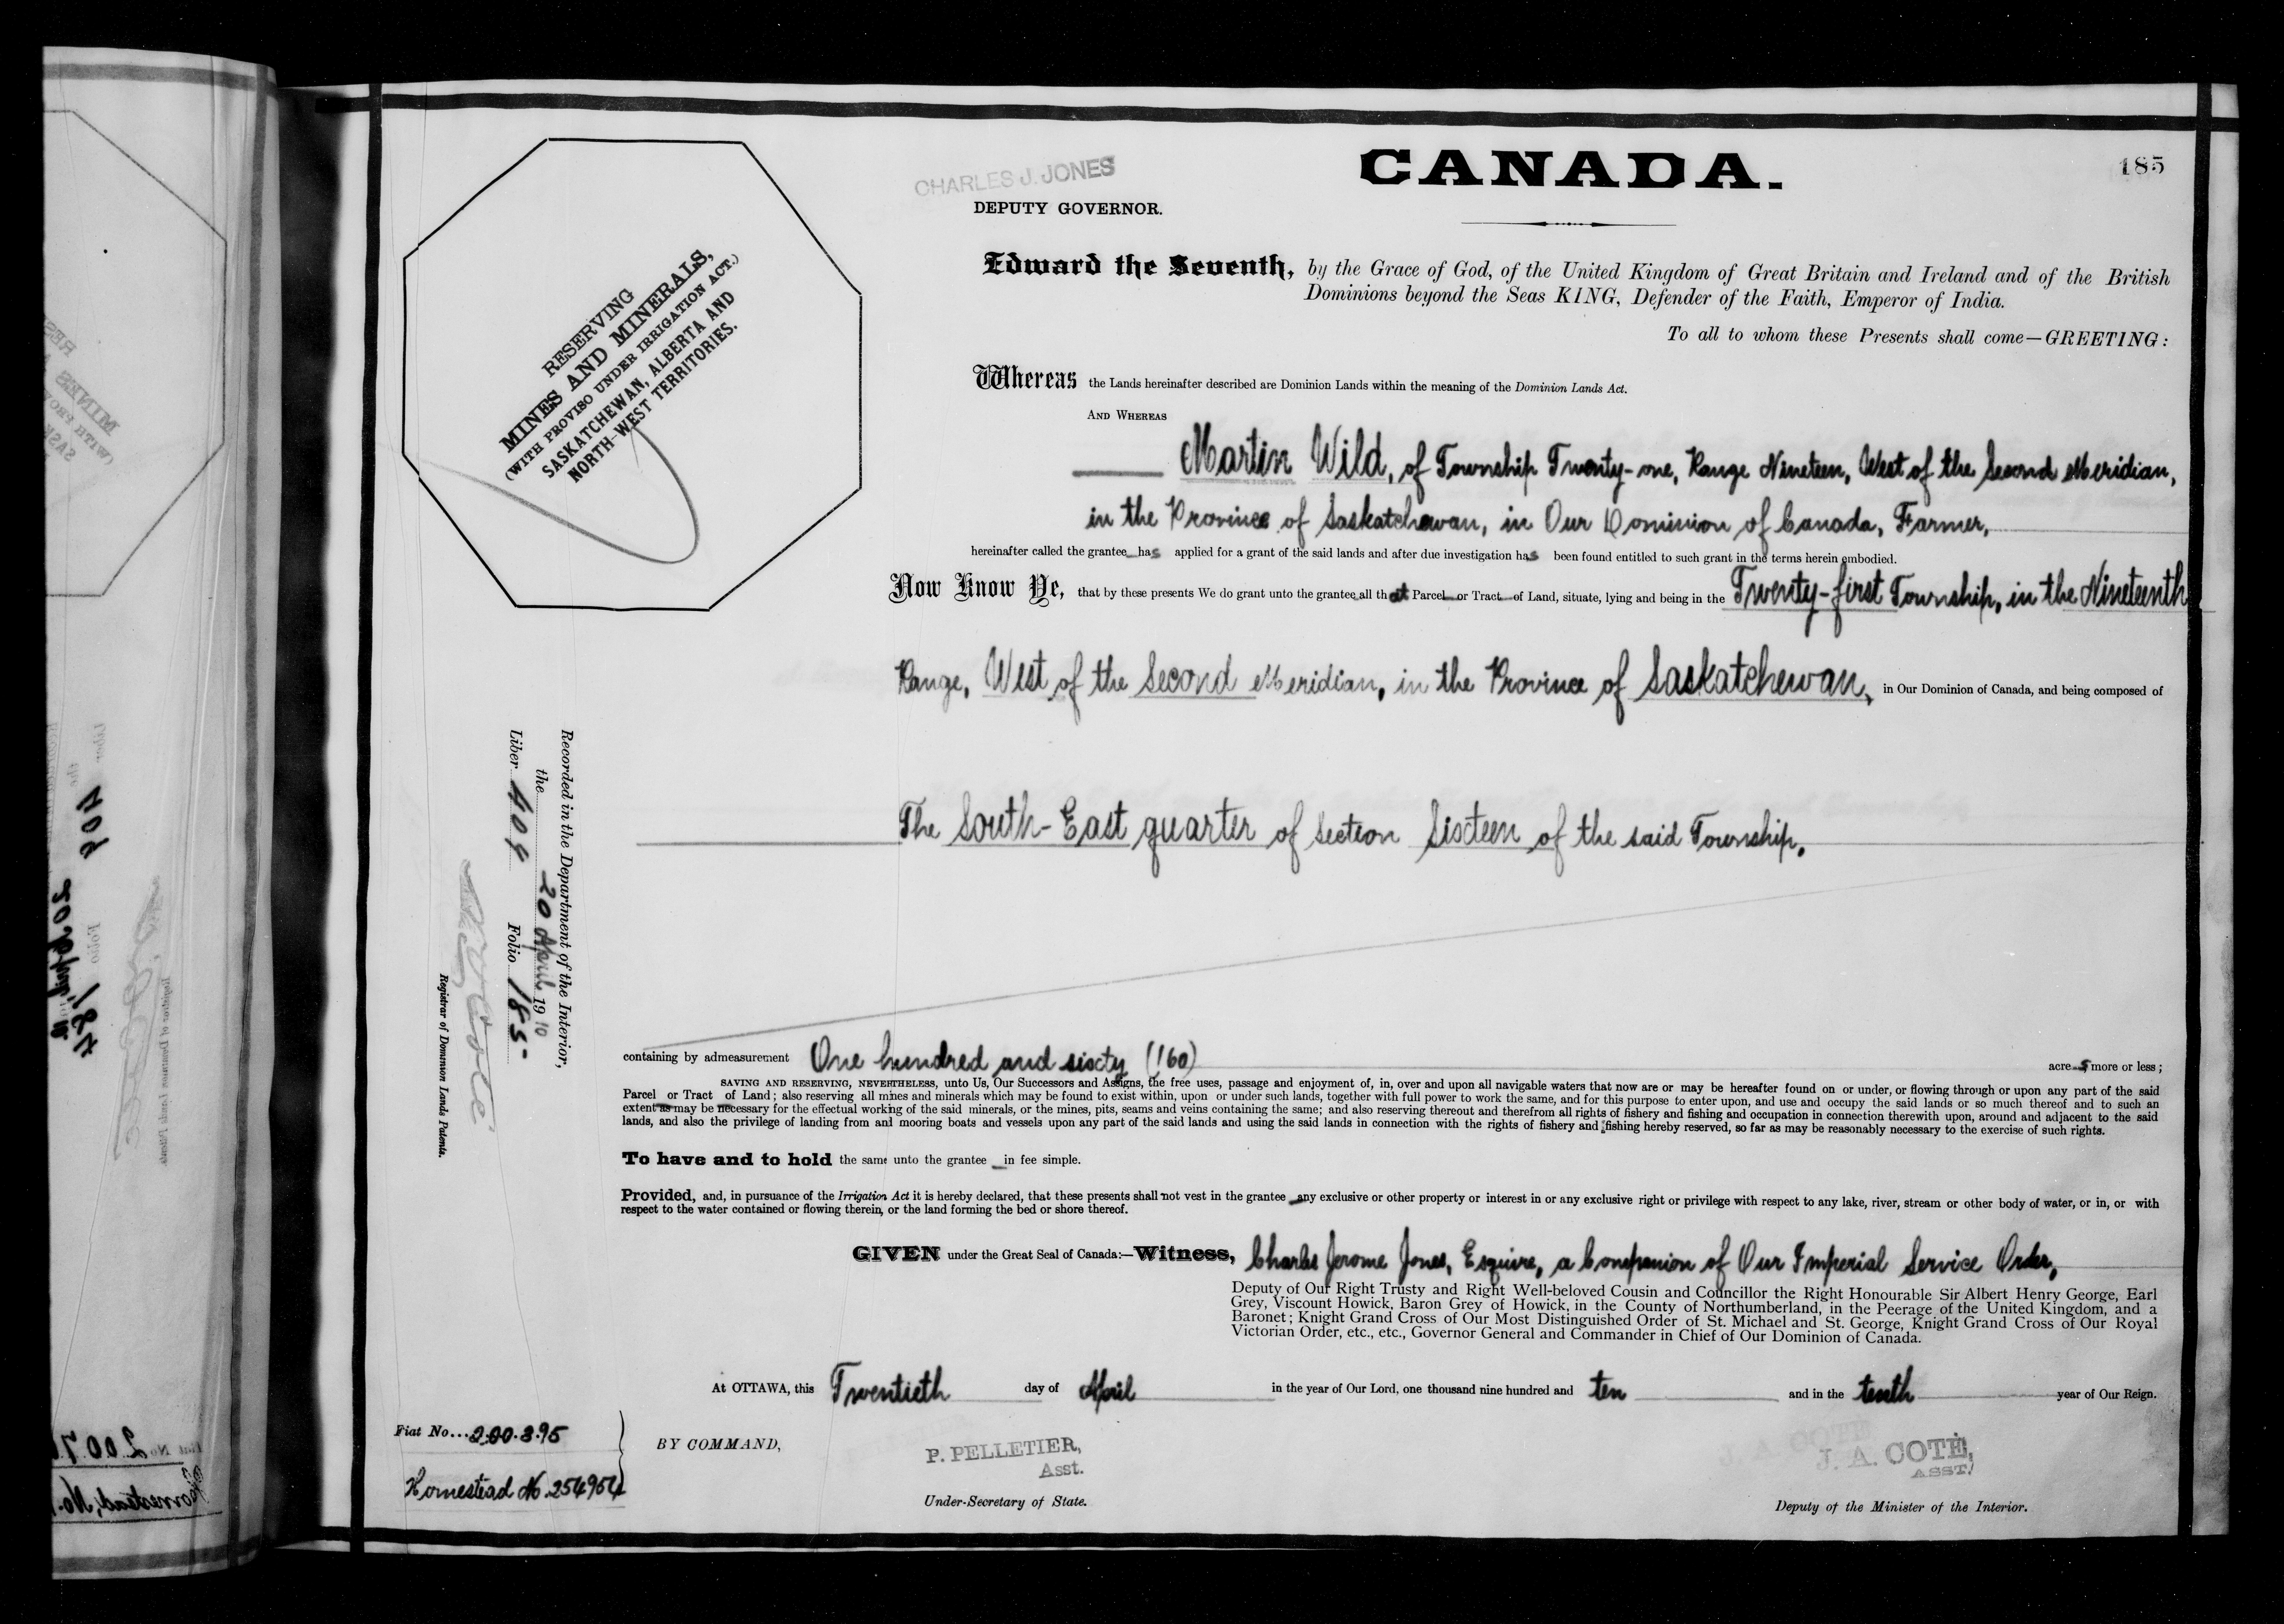 CANADA.
185
CHARLES J. JONES
DEPUTY GOVERNOR.
RESERVING
MINES AND MINERALS,
(WITH PROVISO UNDER IRRIGATION ACT.)
SASKATCHEWAN, ALBERTA AND
NORTH-WEST TERRITORIES.
Edward the Seventh, by the Grace of God, of the United Kingdom of Great Britain and Ireland and of the British
Dominions beyond the Seas KING, Defender of the Faith, Emperor of India.
To all to whom these Presents shall come—GREETING:
Whereas the Lands hereinafter described are Dominion Lands within the meaning of the Dominion Lands Act.
AND WHEREAS
Martin Wild, of Township Twenty-one, Range Nineteen, West of the Second Meridian,
in the Province of Saskatchewan, in Our Dominion of Canada, Farmer,
hereinafter called the grantee has applied for a grant of the said lands and after due investigation has been found entitled to such grant in the terms herein embodied.
Now Know Ye, that by these presents We do grant unto the grantee all that Parcel or Tract of Land, situate, lying and being in the Twenty-first Township, in the Nineteenth
Range, West of the Second Meridian, in the Province of Saskatchewan, in Our Dominion of Canada, and being composed of
The South-East quarter of Section Sixteen of the said Township.
Recorded in the Department of the Interior,
the 20 April 1910
Liber 409 Folio 185
Registrar of Dominion Lands Patents.
containing by admeasurement One hundred and sixty (160) acres more or less;
SAVING AND RESERVING, NEVERTHELESS, unto Us, Our Successors and Assigns, the free uses, passage and enjoyment of, in, over and upon all navigable waters that now are or may be hereafter found on or under, or flowing through or upon any part of the said
Parcel or Tract of Land; also reserving all mines and minerals which may be found to exist within, upon or under such lands, together with full power to work the same, and for this purpose to enter upon, and use and occupy the said lands or so much thereof and to such an
extent as may be necessary for the effectual working of the said minerals, or the mines, pits, seams and veins containing the same; and also reserving thereout and therefrom all rights of fishery and fishing and occupation in connection therewith upon, around and adjacent to the said
lands, and also the privilege of landing from and mooring boats and vessels upon any part of the said lands and using the said lands in connection with the rights of fishery and fishing hereby reserved, so far as may be reasonably necessary to the exercise of such rights.
To have and to hold the same unto the grantee in fee simple.
Provided, and, in pursuance of the Irrigation Act it is hereby declared, that these presents shall not vest in the grantee any exclusive or other property or interest in or any exclusive right or privilege with respect to any lake, river, stream or other body of water, or in, or with
respect to the water contained or flowing therein, or the land forming the bed or shore thereof.
GIVEN under the Great Seal of Canada:—Witness, Charles Jerome Jones, Esquire, a Companion of Our Imperial Service Order,
Deputy of Our Right Trusty and Right Well-beloved Cousin and Councillor the Right Honourable Sir Albert Henry George, Earl
Grey, Viscount Howick, Baron Grey of Howick, in the County of Northumberland, in the Peerage of the United Kingdom, and a
Baronet; Knight Grand Cross of Our Most Distinguished Order of St. Michael and St. George, Knight Grand Cross of Our Royal
Victorian Order, etc., etc., Governor General and Commander in Chief of Our Dominion of Canada.
At OTTAWA, this Twentieth day of April in the year of Our Lord, one thousand nine hundred and ten and in the tenth year of Our Reign.
Fiat No...200.395
Homestead No. 254954
BY COMMAND,
P. PELLETIER,
Asst.
Under-Secretary of State.
J. A. COTÉ,
ASST.
Deputy of the Minister of the Interior.